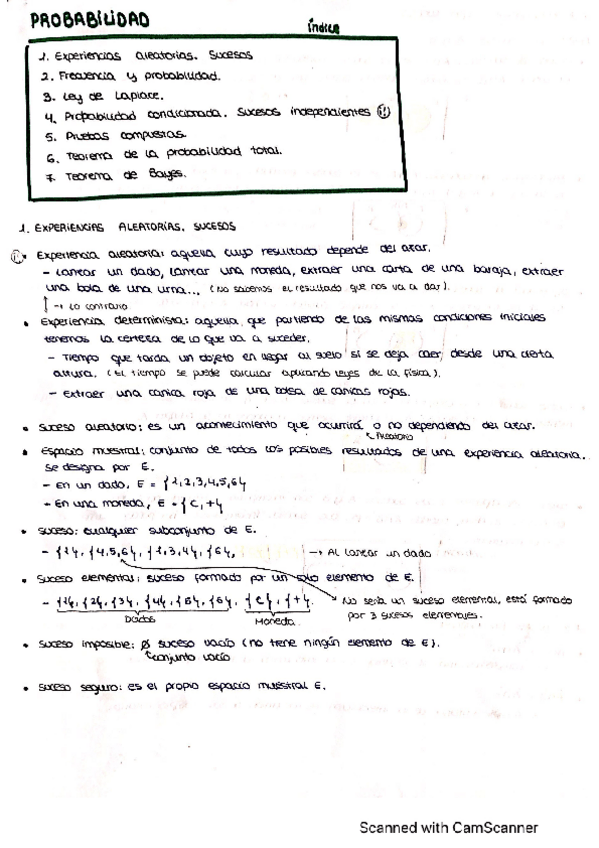 PROBABILIDAD
Índice
1. Experiencias aleatorias. Sucesos
2. Frecuencia y probabilidad.
3. Ley de Laplace.
4. Probabilidad condicionada. Sucesos independientes (!!)
5. Pruebas compuestas.
6. Teorema de la probabilidad total.
7. Teorema de Bayes.
1. EXPERIENCIAS ALEATORIAS. SUCESOS
• Experiencia aleatoria: aquella cuyo resultado depende del azar.
- Lanzar un dado, lanzar una moneda, extraer una carta de una baraja, extraer
una bola de una urna... (No sabemos el resultado que nos va a dar).
↑ → Lo contrario
• Experiencia determinista: aquella que partiendo de las mismas condiciones iniciales
tenemos la certeza de lo que va a suceder.
- Tiempo que tarda un objeto en llegar al suelo si se deja caer desde una cierta
altura. (El tiempo se puede calcular aplicando leyes de la física).
- Extraer una canica roja de una bolsa de canicas rojas.
• Suceso aleatorio: es un acontecimiento que ocurrirá o no dependiendo del azar.
• Espacio muestral: conjunto de todos los posibles resultados de una experiencia aleatoria.
Se designa por E.
- En un dado, E = {1,2,3,4,5,6}
- En una moneda, E = {C,+}
• Suceso: cualquier subconjunto de E.
- {2}, {4,5,6}, {1,3,4}, {6}, → Al lanzar un dado
• Suceso elemental: suceso formado por un solo elemento de E.
- {1}, {2}, {3}, {4}, {5}, {6}, {C}, {+}. No sería un suceso elemental, está formado
Dados Moneda por 3 sucesos elementales.
• Suceso imposible: Ø suceso vacío (no tiene ningún elemento de E).
conjunto vacío
• Suceso seguro: es el propio espacio muestral E.
Scanned with CamScanner